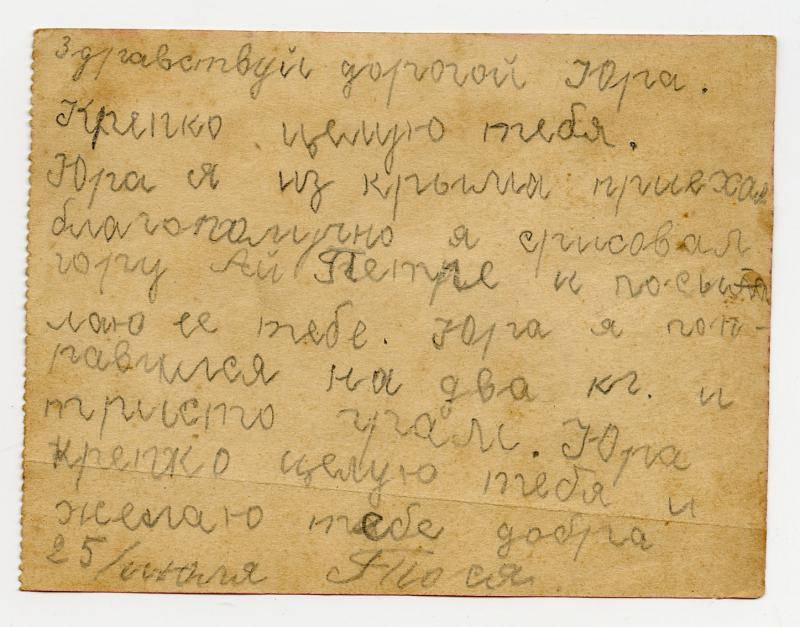 Здравствуй дорогой Юра.
Крепко целую тебя.
Юра я из крыма приехал
благополучно я срисовал
гору Ай Петре и посы
лаю ее тебе. Юра я поп-
равился на два кг. и
тристо грам. Юра
крепко целую тебя и
желаю тебе добра
25/июля Тося